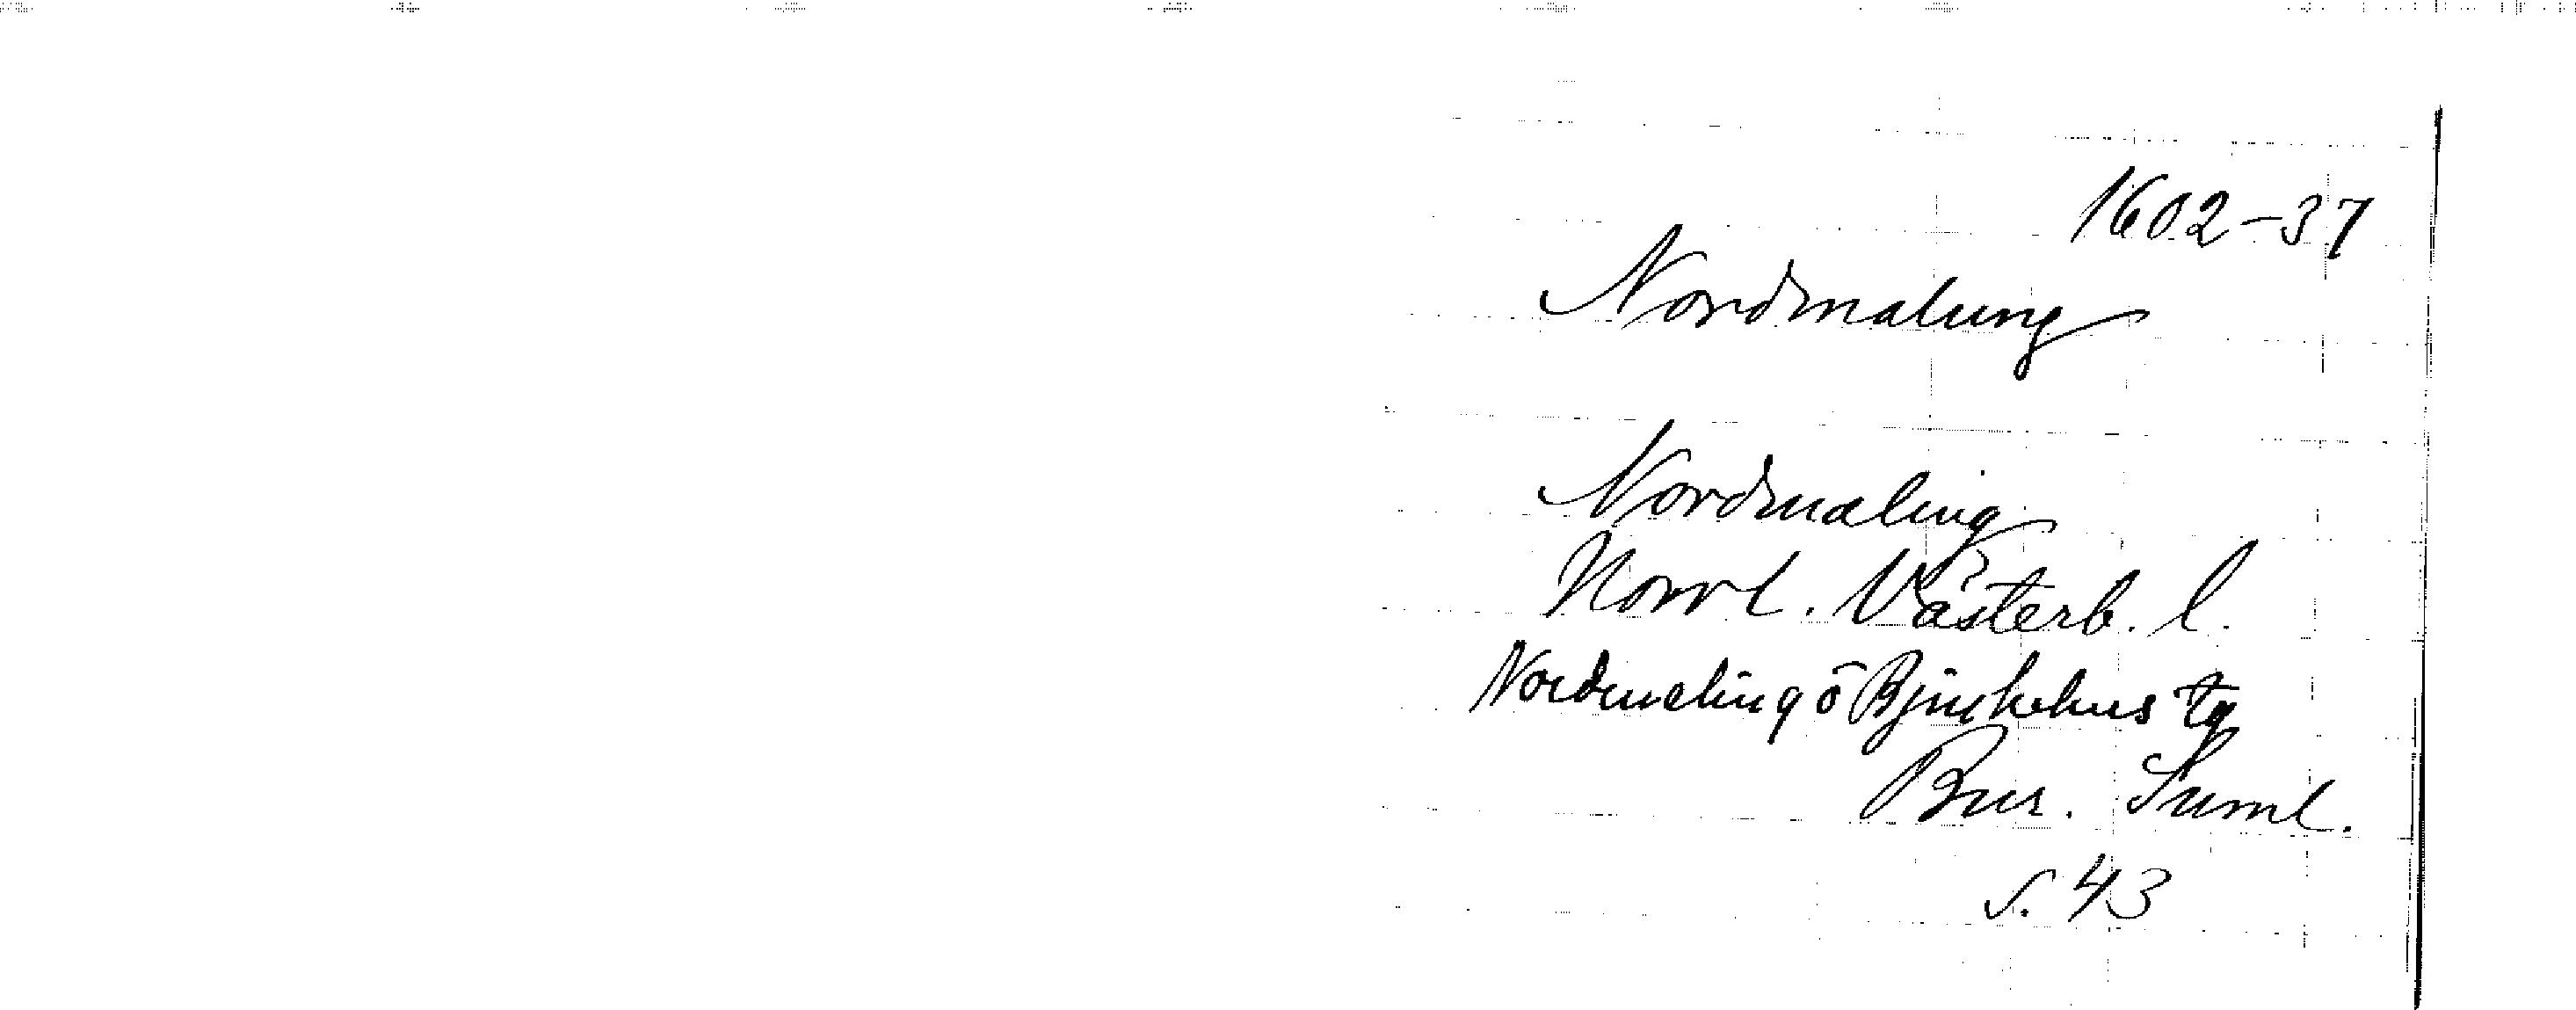 1602-37
Nordmalung
Nordmaling
Norrl. Västerb. l.
Nordmaling o Bjurholms tg
Bur. Suml.
s. 43